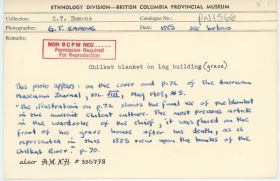 ETHNOLOGY DIVISION—BRITISH COLUMBIA PROVINCIAL MUSEUM
Collection: G.T. Emmons Catalogue No.: PN1566
Photographer: G.T. EMMONS Date: 1885
Remarks:
NON BCPM NEG
Permission Required
For Reproduction
Chilkat blanket on log building (grave)
This photo appears on the cover and p.72 of The American
Museum Journal, vol. VIII, May 1908, #5.
"The illustration on p.72 shows the final use of the blanket
in the ancient Chilkat culture. The most precious article
in the wardrobe of the chief, it was placed on the
front of his grave house after his death, as is
represented in this 1885 view upon the banks of the
Chilkat River." p.70.
also A.M.N.H # 335778